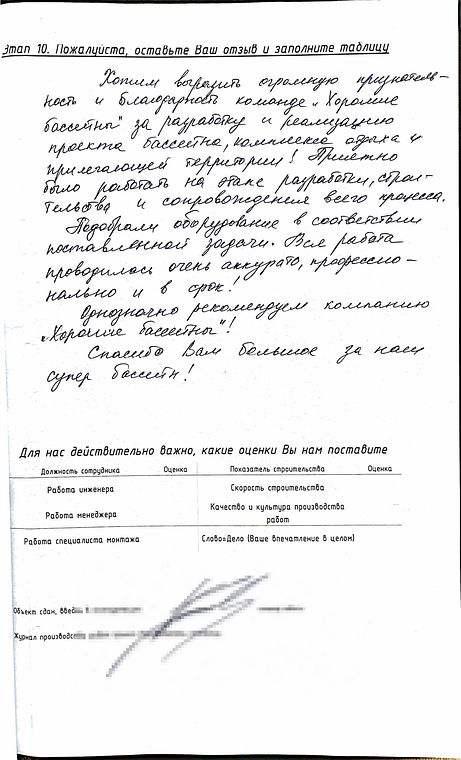 Этап 10. Пожалуйста, оставьте Ваш отзыв и заполните таблицу
Хотим выразить огромную признатель-
ность и благодарность команде „Хорошие
бассейны" за разработку и реализацию
проекта бассейна, комплекса отдыха и
прилегающей территории! Приятно
было работать на этапе разработки, строи-
тельства и сопровождения всего процесса.
Подобрали оборудование в соответствии
поставленной задачи. Вся работа
проводилась очень аккуратно, профессио-
нально и в срок!
Однозначно рекомендуем компанию
„Хорошие бассейны"!
Спасибо Вам большое за наш
супер бассейн!
Для нас действительно важно, какие оценки Вы нам поставите
Должность сотрудника Оценка Показатель строительства Оценка
Работа инженера Скорость строительства
Работа менеджера Качество и культура производства работ
Работа специалиста монтажа Слово=Дело (Ваше впечатление в целом)
Объект сдан, введен
Журнал производства